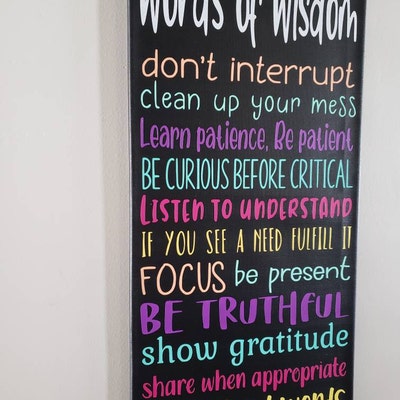 words of wisdom
don't interrupt
clean up your mess
Learn patience, Be patient
BE CURIOUS BEFORE CRITICAL
LISTEN TO UNDERSTAND
IF YOU SEE A NEED FULFILL IT
FOCUS be present
BE TRUTHFUL
show gratitude
share when appropriate